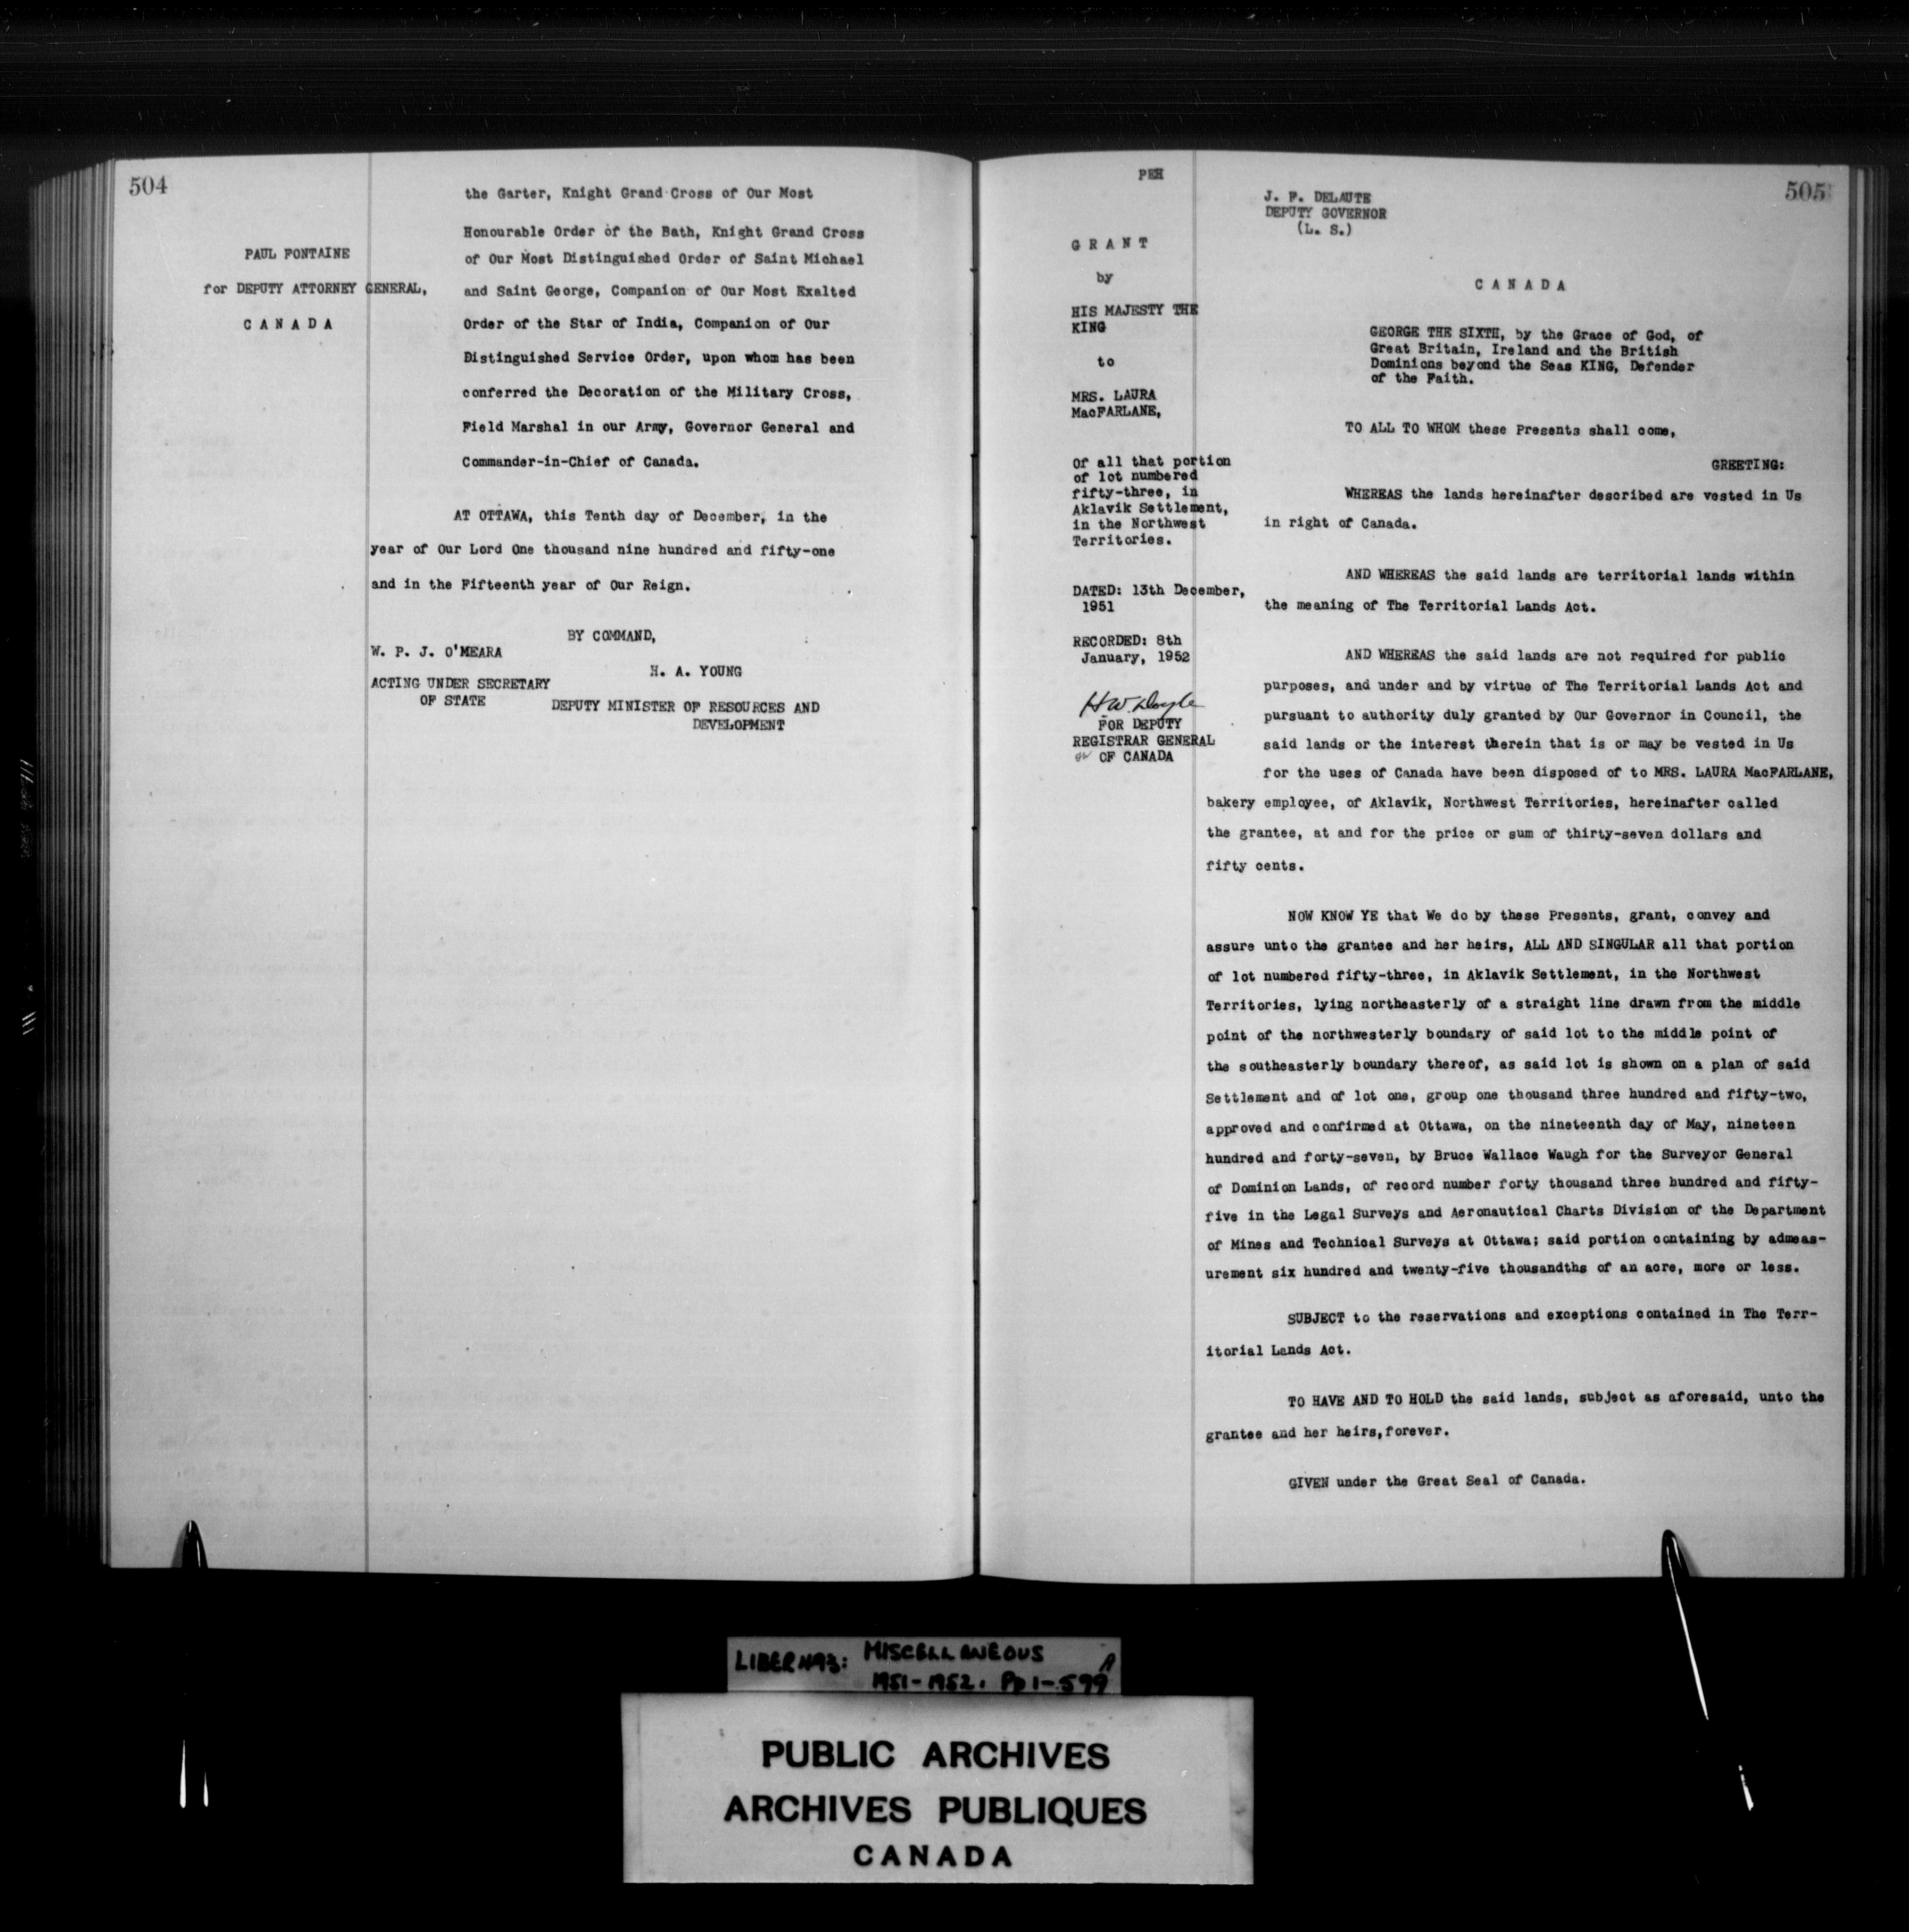 504
PAUL FONTAINE
for DEPUTY ATTORNEY GENERAL,
CANADA
the Garter, Knight Grand Cross of Our Most
Honourable Order of the Bath, Knight Grand Cross
of Our Most Distinguished Order of Saint Michael
and Saint George, Companion of Our Most Exalted
Order of the Star of India, Companion of Our
Distinguished Service Order, upon whom has been
conferred the Decoration of the Military Cross,
Field Marshal in our Army, Governor General and
Commander-in-Chief of Canada.
AT OTTAWA, this Tenth day of December, in the
year of Our Lord One thousand nine hundred and fifty-one
and in the Fifteenth year of Our Reign.
BY COMMAND,
W. P. J. O'MEARA
ACTING UNDER SECRETARY
OF STATE
H. A. YOUNG
DEPUTY MINISTER OF RESOURCES AND
DEVELOPMENT
505
PEH
GRANT
by
HIS MAJESTY THE
KING
to
MRS. LAURA
MacFARLANE,
Of all that portion
of lot numbered
fifty-three, in
Aklavik Settlement,
in the Northwest
Territories.
DATED: 13th December,
1951
RECORDED: 8th
January, 1952
H W Doyle
FOR DEPUTY
REGISTRAR GENERAL
OF CANADA
J. F. DELAUTE
DEPUTY GOVERNOR
(L. S.)
CANADA
GEORGE THE SIXTH, by the Grace of God, of
Great Britain, Ireland and the British
Dominions beyond the Seas KING, Defender
of the Faith.
TO ALL TO WHOM these Presents shall come,
GREETING:
WHEREAS the lands hereinafter described are vested in Us
in right of Canada.
AND WHEREAS the said lands are territorial lands within
the meaning of The Territorial Lands Act.
AND WHEREAS the said lands are not required for public
purposes, and under and by virtue of The Territorial Lands Act and
pursuant to authority duly granted by Our Governor in Council, the
said lands or the interest therein that is or may be vested in Us
for the uses of Canada have been disposed of to MRS. LAURA MacFARLANE,
bakery employee, of Aklavik, Northwest Territories, hereinafter called
the grantee, at and for the price or sum of thirty-seven dollars and
fifty cents.
NOW KNOW YE that We do by these Presents, grant, convey and
assure unto the grantee and her heirs, ALL AND SINGULAR all that portion
of lot numbered fifty-three, in Aklavik Settlement, in the Northwest
Territories, lying northeasterly of a straight line drawn from the middle
point of the northwesterly boundary of said lot to the middle point of
the southeasterly boundary thereof, as said lot is shown on a plan of said
Settlement and of lot one, group one thousand three hundred and fifty-two,
approved and confirmed at Ottawa, on the nineteenth day of May, nineteen
hundred and forty-seven, by Bruce Wallace Waugh for the Surveyor General
of Dominion Lands, of record number forty thousand three hundred and fifty-
five in the Legal Surveys and Aeronautical Charts Division of the Department
of Mines and Technical Surveys at Ottawa; said portion containing by admeas-
urement six hundred and twenty-five thousandths of an acre, more or less.
SUBJECT to the reservations and exceptions contained in The Terr-
itorial Lands Act.
TO HAVE AND TO HOLD the said lands, subject as aforesaid, unto the
grantee and her heirs,forever.
GIVEN under the Great Seal of Canada.
LIBER 493: MISCELLANEOUS A
1951-1952. Pp 1-599
PUBLIC ARCHIVES
ARCHIVES PUBLIQUES
CANADA